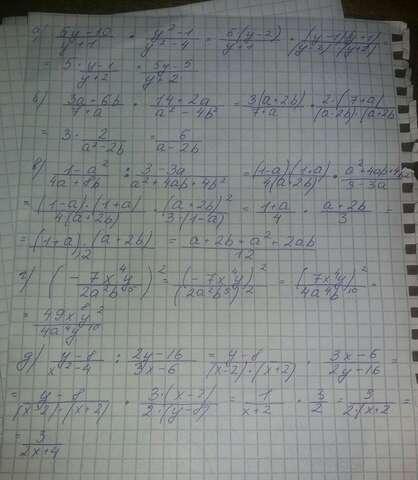 а) (5y-10)/(y+1) · (y²-1)/(y²-4) = 5(y-2)/(y+1) · (y-1)(y+1)/((y-2)·(y+2)) =
= 5 · (y-1)/(y+2) = (5y-5)/(y+2)
б) (3a+6b)/(7+a) · (14+2a)/(a²-4b²) = 3(a+2b)/(7+a) · 2·(7+a)/((a-2b)·(a+2b)
= 3 · 2/(a-2b) = 6/(a-2b)
в) (1-a²)/(4a+8b) : (3-3a)/(a²+4ab+4b²) = (1-a)(1+a)/4(a+2b) · (a²+4ab+4b²)/(3-3a)
= (1-a)·(1+a)/4(a+2b) · (a+2b)²/3·(1-a) = (1+a)/4 · (a+2b)/3 =
= (1+a)·(a+2b)/12 = (a+2b+a²+2ab)/12
г) (- 7x⁴y/2a²b⁵)² = (-7x⁴y)²/(2a²b⁵)² = (7x⁴y)²/4a⁴b¹⁰ =
= 49x⁸y²/4a⁴y¹⁰
д) (y-8)/(x²-4) : (2y-16)/(3x-6) = (y-8)/((x-2)·(x+2)) · (3x-6)/(2y-16) =
= (y-8)/((x-2)·(x+2)) · 3·(x-2)/2·(y-8) = 1/(x+2) · 3/2 = 3/2(x+2 =
= 3/(2x+4)